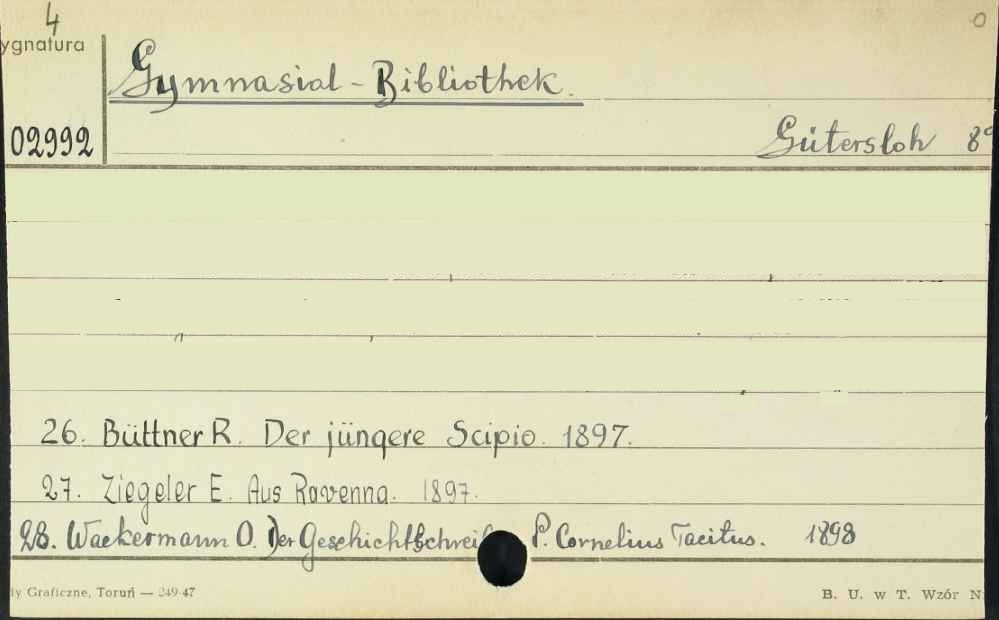 4
ygnatura
Gymnasial-Bibliothek.
02992
Gütersloh 8°
26. Büttner R. Der jüngere Scipio. 1897.
27. Ziegeler E. Aus Ravenna. 1897.
28. Wackermann O. Der Geschichtschrei P. Cornelius Tacitus. 1898
ly Graficzne, Toruń — 249-47
B. U. w T. Wzór N